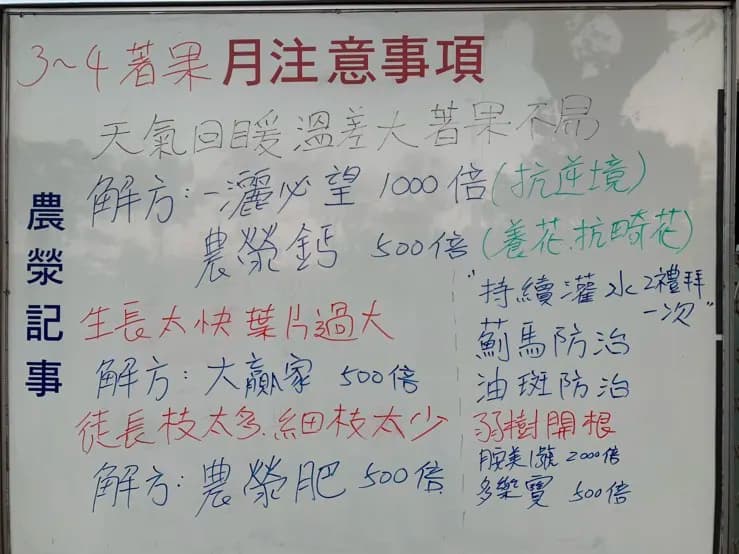 3~4著果月注意事項
天氣回暖溫差大著果不易
解方:一灑必望 1000倍(抗逆境)
農榮鈣 500倍(養花.抗畸花)
農榮記事
生長太快葉片過大
解方:大贏家 500倍
徒長枝太多.細枝太少
解方:農榮肥 500倍
"持續灌水2禮拜一次"
薊馬防治
油斑防治
弱樹開根
腴美1號 2000倍
多樂寶 500倍